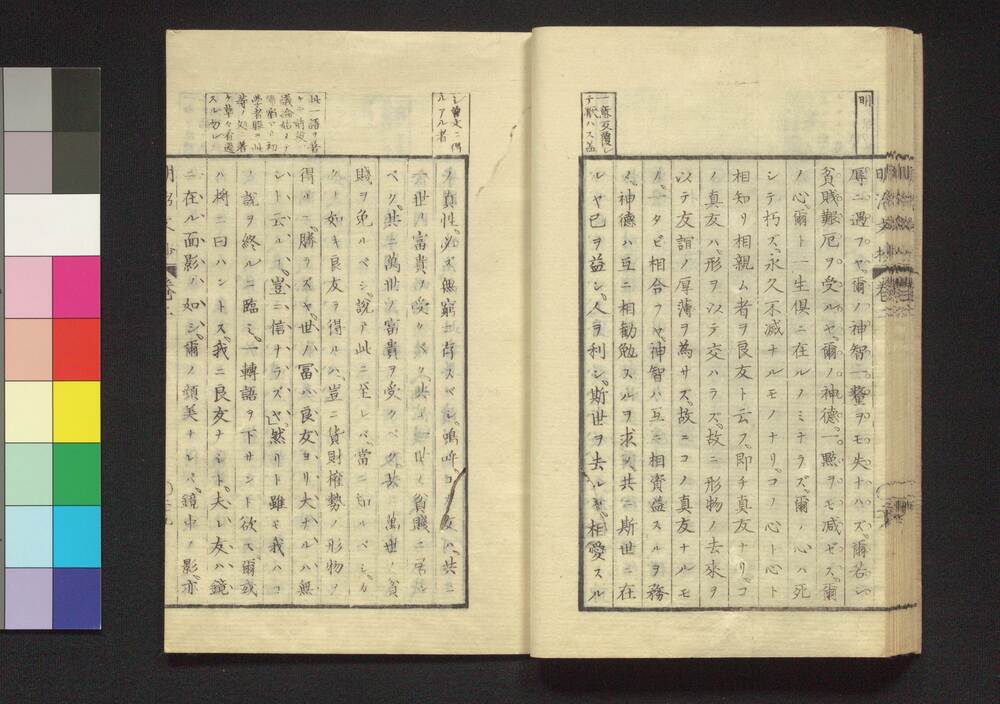 明
一蔡反覆シ
テ厭ハス益
辱ニ遇フヤ爾ノ神智一釐ヲモ失ナハズ爾若シ
貧賤艱厄ヲ受ルヤ爾ノ神德一點ヲモ減ゼズ爾
ノ心爾ト一生俱ニ在ルノミナラズ爾ノ心ハ死
シテ朽ズ永久不滅ナルモノナリコノ心ト心ト
相知リ相親ム者ヲ良友ト云フ即チ真友ナリコ
ノ真友ハ形ヲ以テ交ハラズ故ニ形物ノ去來ヲ
以テ友誼ノ厚薄ヲ為サズ故ニコノ真友ナルモ
ノ一タビ相合フヤ神智ハ互ニ相資益スルヲ務
メ神德ハ互ニ相勸勉スルヲ求メ共ニ斯世ニ在
ルヤ已ヲ益シ人ヲ利シ斯世ヲ去ルヤ相愛スル
ルアル者
此一語ヲ
スル勿レ
ノ真性必ズ無窮ニ存スベシ嗚呼コノ友ハ共ニ
一世ノ富貴ヲ受クベク共ニ一世ノ貧賤ニ
ベク共ニ萬世ノ富貴ヲ受クベク共ニ萬世ノ貧
賤ヲ免ルベシ說ア此ニ至レバ當ニ知ルベシカ
クノ如キ良友ヲ得ルハ豈ニ貨財權勢ノ形物ヲ
得ルニ勝ラズヤ世ノ冨ハ良友ヨリ大ナルハ無
シト云ルヿ豈ニ信ナラズヤ然リト雖モ我ハコ
ノ說ヲ終ルニ臨ミ一轉語ヲ下サント欲ス爾或
ハ將ニ曰ハントス我ニ良友ナシト夫レ友ハ鏡
ニ在ル面影ノ如シ爾ノ頭美ナレバ鏡中ノ影亦